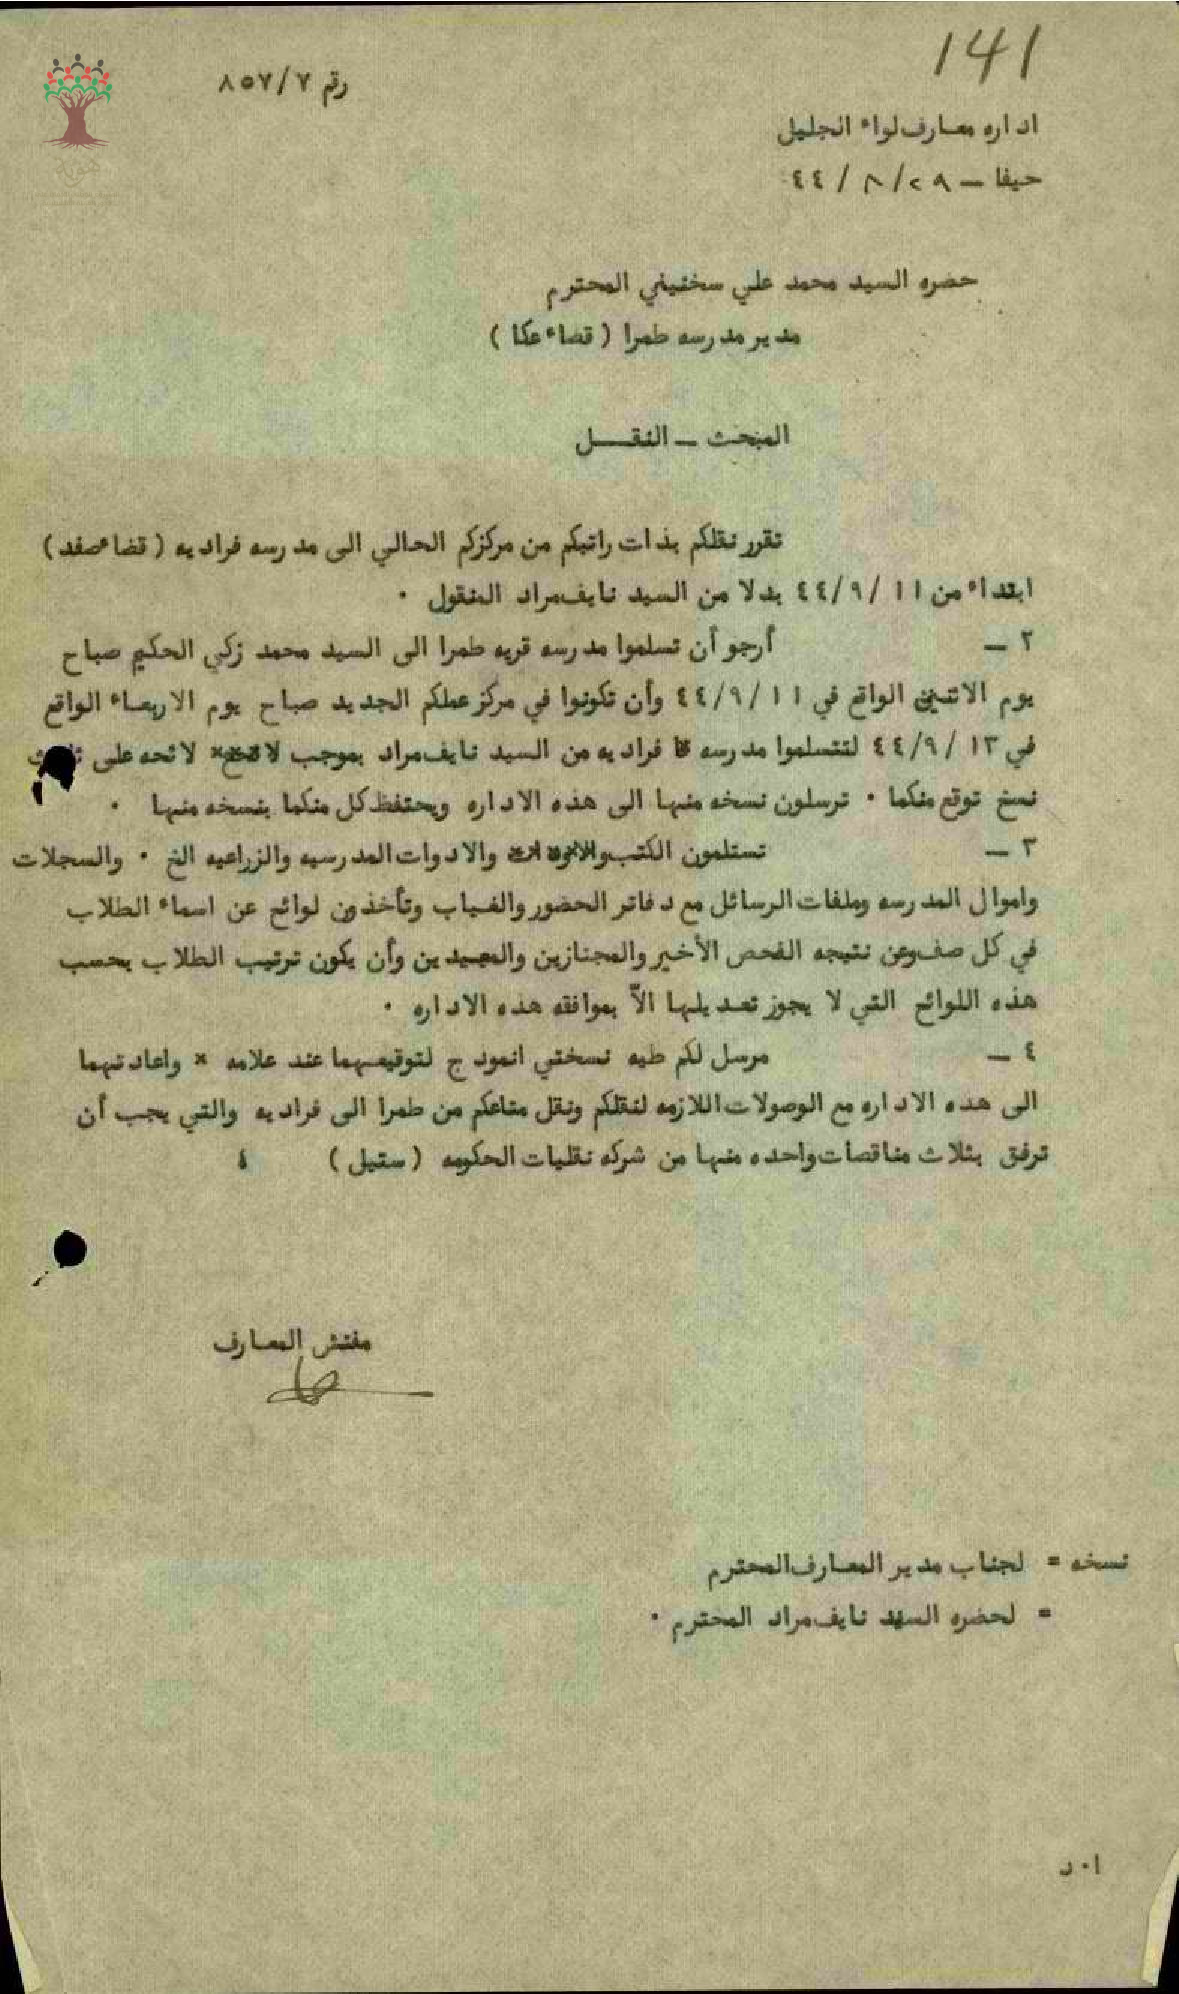 141
رقم ٨٥٧/٧
اداره معارف لواء الجليل
حيفا – ٢٩/ ٨/ ٤٤
حضره السيد محمد علي سخنيني المحترم
مدير مدرسه طمرا ( قضاء عكا )
المبحث – النقـــل
تقرر نقلكم بذات راتبكم من مركزكم الحالي الى مدرسه فراديه ( قضاء صفد )
ابتداء من ١١ /٤٤/٩ بدلا من السيد نايف مراد المنقول ٠
٢ – أرجو أن تسلموا مدرسه قريه طمرا الى السيد محمد زكي الحكيم صباح
يوم الاثنين الواقع في ١١ /٤٤/٩ وأن تكونوا في مركز عملكم الجديد صباح يوم الاربعاء الواقع
في ١٣ /٤٤/٩ لتتسلموا مدرسه فراديه من السيد نايف مراد بموجب لائحه على
نسخ توقع منكما ٠ ترسلون نسخه منها الى هذه الاداره ويحتفظ كل منكما بنسخه منها ٠
٣ – تستلمون الكتب والادوات المدرسيه والزراعيه الخ ٠ والسجلات
واموال المدرسه وملفات الرسائل مع دفاتر الحضور والغياب وتأخذون لوائح عن اسماء الطلاب
في كل صف وعن نتيجه الفحص الأخير والمجتازين والمعيدين وأن يكون ترتيب الطلاب بحسب
هذه اللوائح التي لا يجوز تعديلها الاّ بموافقه هذه الاداره ٠
٤ – مرسل لكم طيه نسختي انموذج لتوقيعهما عند علامه × واعادتهما
الى هذه الاداره مع الوصولات اللازمه لنقلكم ونقل متاعكم من طمرا الى فراديه والتي يجب أن
ترفق بثلاث مناقصات واحده منها من شركه نقليات الحكومه ( ستيل )
مفتش المعارف
نسخه = لجناب مدير المعارف المحترم
= لحضره السيد نايف مراد المحترم ٠
ا٠د
هوية